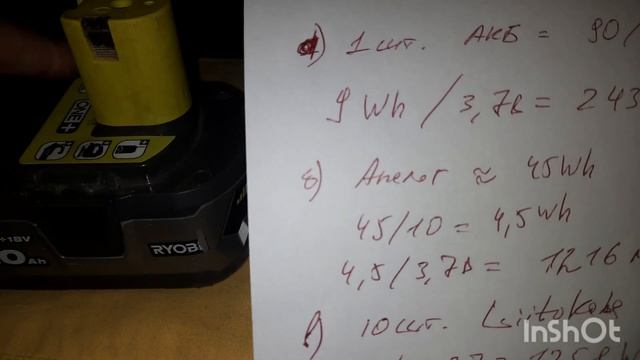 а) 1 шт. АКБ = 90/
9 Wh / 3,7в = 243
б) Аналог ≈ 45Wh
45/10 = 4,5Wh
4,5/3,7в = 1216
в) 10 шт.
ONE+
+18V
0Ah
RYOBI
InShOt